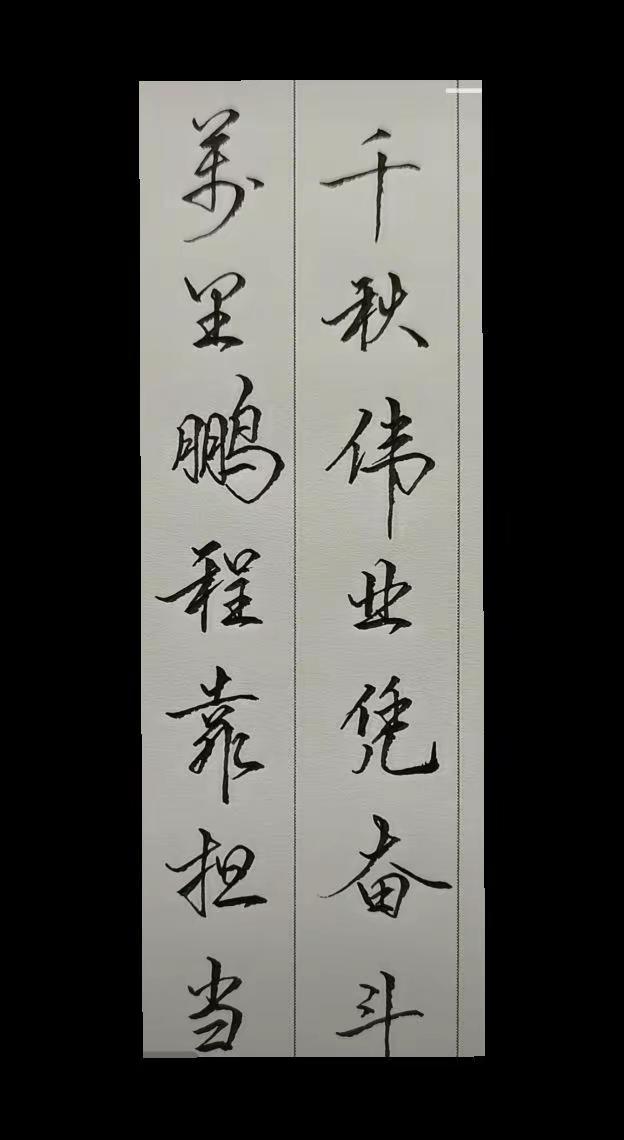 千秋伟业凭奋斗
萬里鹏程靠担当